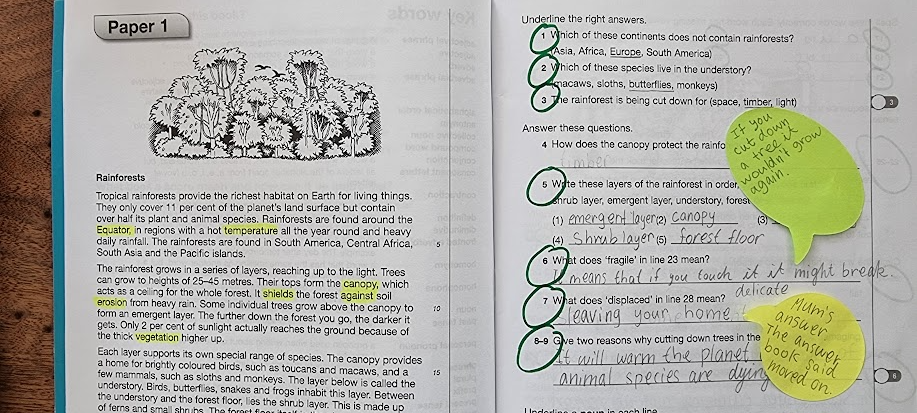 Paper 1
Rainforests
Tropical rainforests provide the richest habitat on Earth for living things.
They only cover 11 per cent of the planet's land surface but contain
over half its plant and animal species. Rainforests are found around the
Equator, in regions with a hot temperature all the year round and heavy
daily rainfall. The rainforests are found in South America, Central Africa, 5
South Asia and the Pacific islands.
The rainforest grows in a series of layers, reaching up to the light. Trees
can grow to heights of 25–45 metres. Their tops form the canopy, which
acts as a ceiling for the whole forest. It shields the forest against soil
erosion from heavy rain. Some individual trees grow above the canopy to 10
form an emergent layer. The further down the forest you go, the darker it
gets. Only 2 per cent of sunlight actually reaches the ground because of
the thick vegetation higher up.
Each layer supports its own special range of species. The canopy provides
a home for brightly coloured birds, such as toucans and macaws, and a 15
few mammals, such as sloths and monkeys. The layer below is called the
understory. Birds, butterflies, snakes and frogs inhabit this layer. Between
the understory and the forest floor, lies the shrub layer. This is made up
of ferns and small shrubs. The forest floor itself is
Underline the right answers.
1 Which of these continents does not contain rainforests?
(Asia, Africa, Europe, South America)
2 Which of these species live in the understory?
(macaws, sloths, butterflies, monkeys)
3 The rainforest is being cut down for (space, timber, light)
3
Answer these questions.
4 How does the canopy protect the
timber
5 Write these layers of the rainforest in order,
shrub layer, emergent layer, understory,
(1) emergent layer (2) canopy (3)
(4) Shrub layer (5) forest floor
6 What does 'fragile' in line 23 mean?
It means that if you touch it it might break.
delicate
7 What does 'displaced' in line 28 mean?
leaving your home
8–9 Give two reasons why cutting down trees in the
It will warm the planet
animal species are dying
6
If you
cut down
a tree it
wouldn't grow
again.
Mum's
answer
The answer
book said
moved on.